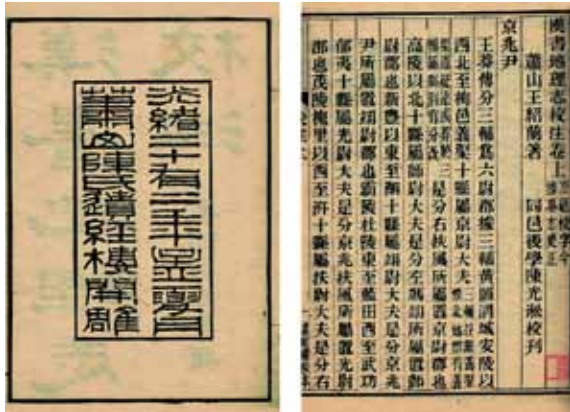 光緒二十有二年孟夏月
蕭山陳氏遺經樓開雕
漢書地理志校注卷上
蕭山王紹蘭著 同邑後學陳光淞校刊
京兆尹
王莽傳分三輔爲六尉郡據三輔黃圖渭城安陵以
西北至栒邑義渠十縣屬京尉大夫
是分右扶風所屬置京尉郡也
高陵以北十縣屬師尉大夫是分左馮翊所屬置師
尉郡也新豐以東至湖十縣屬翊尉大夫是分京兆
尹所屬置翊尉郡也霸陵杜陵東至藍田西至武功
郁夷十縣屬光尉大夫是分京兆扶風所屬置光尉
郡也茂陵槐里以西至汧十縣屬扶尉大夫是分右